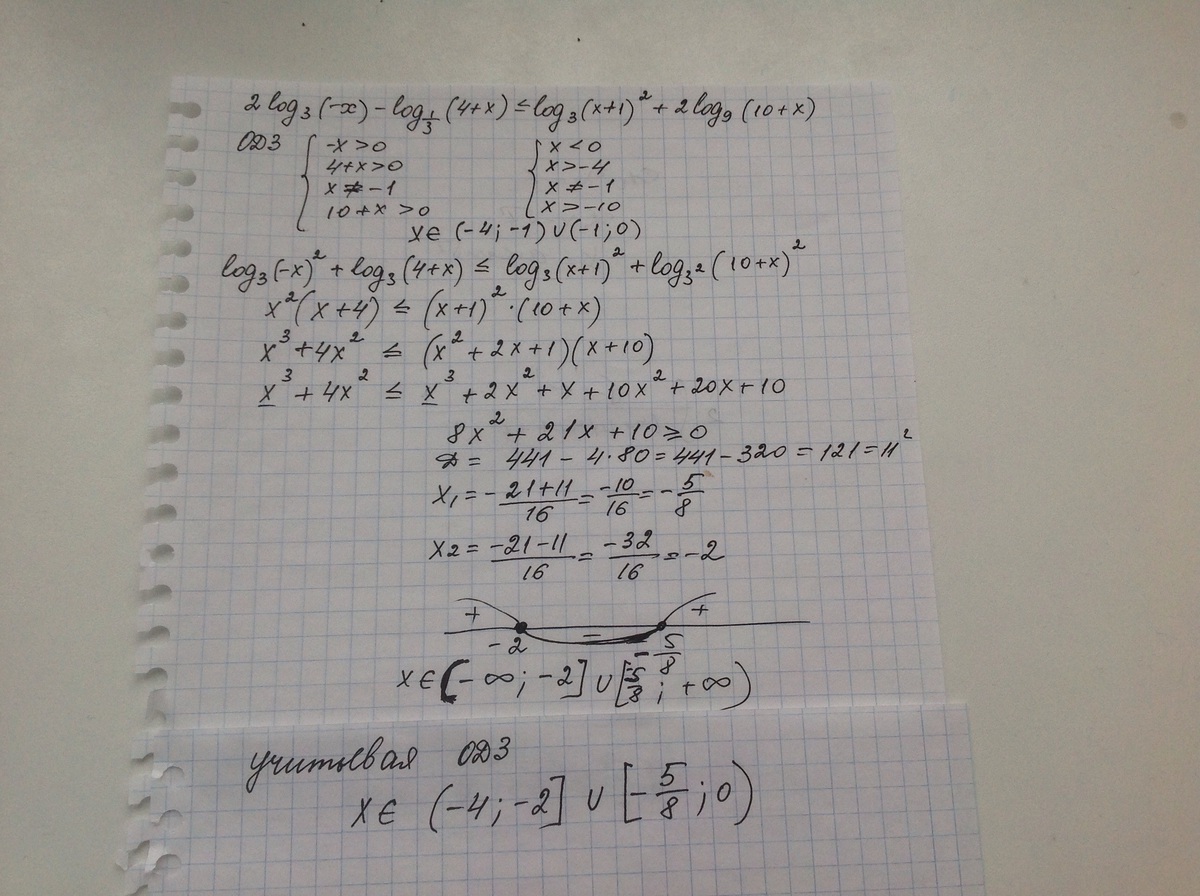 2 log₃(-x) - log_{1/3}(4+x) ≤ log₃(x+1)² + 2 log₉(10+x)
ОДЗ { -x > 0 { x < 0
4+x > 0 x > -4
x ≠ -1 x ≠ -1
10+x > 0 x > -10
x ∈ (-4; -1) ∪ (-1; 0)
log₃(-x)² + log₃(4+x) ≤ log₃(x+1)² + log_{3²}(10+x)²
x²(x+4) ≤ (x+1)²·(10+x)
x³ + 4x² ≤ (x² + 2x + 1)(x+10)
x³ + 4x² ≤ x³ + 2x² + x + 10x² + 20x + 10
8x² + 21x + 10 ≥ 0
D = 441 - 4·80 = 441 - 320 = 121 = 11²
x₁ = -21+11/16 = -10/16 = -5/8
x2 = -21-11/16 = -32/16 = -2
+ - +
-2 -5/8
x ∈ (-∞; -2] ∪ [-5/8; +∞)
учитывая ОДЗ
x ∈ (-4; -2] ∪ [-5/8; 0)